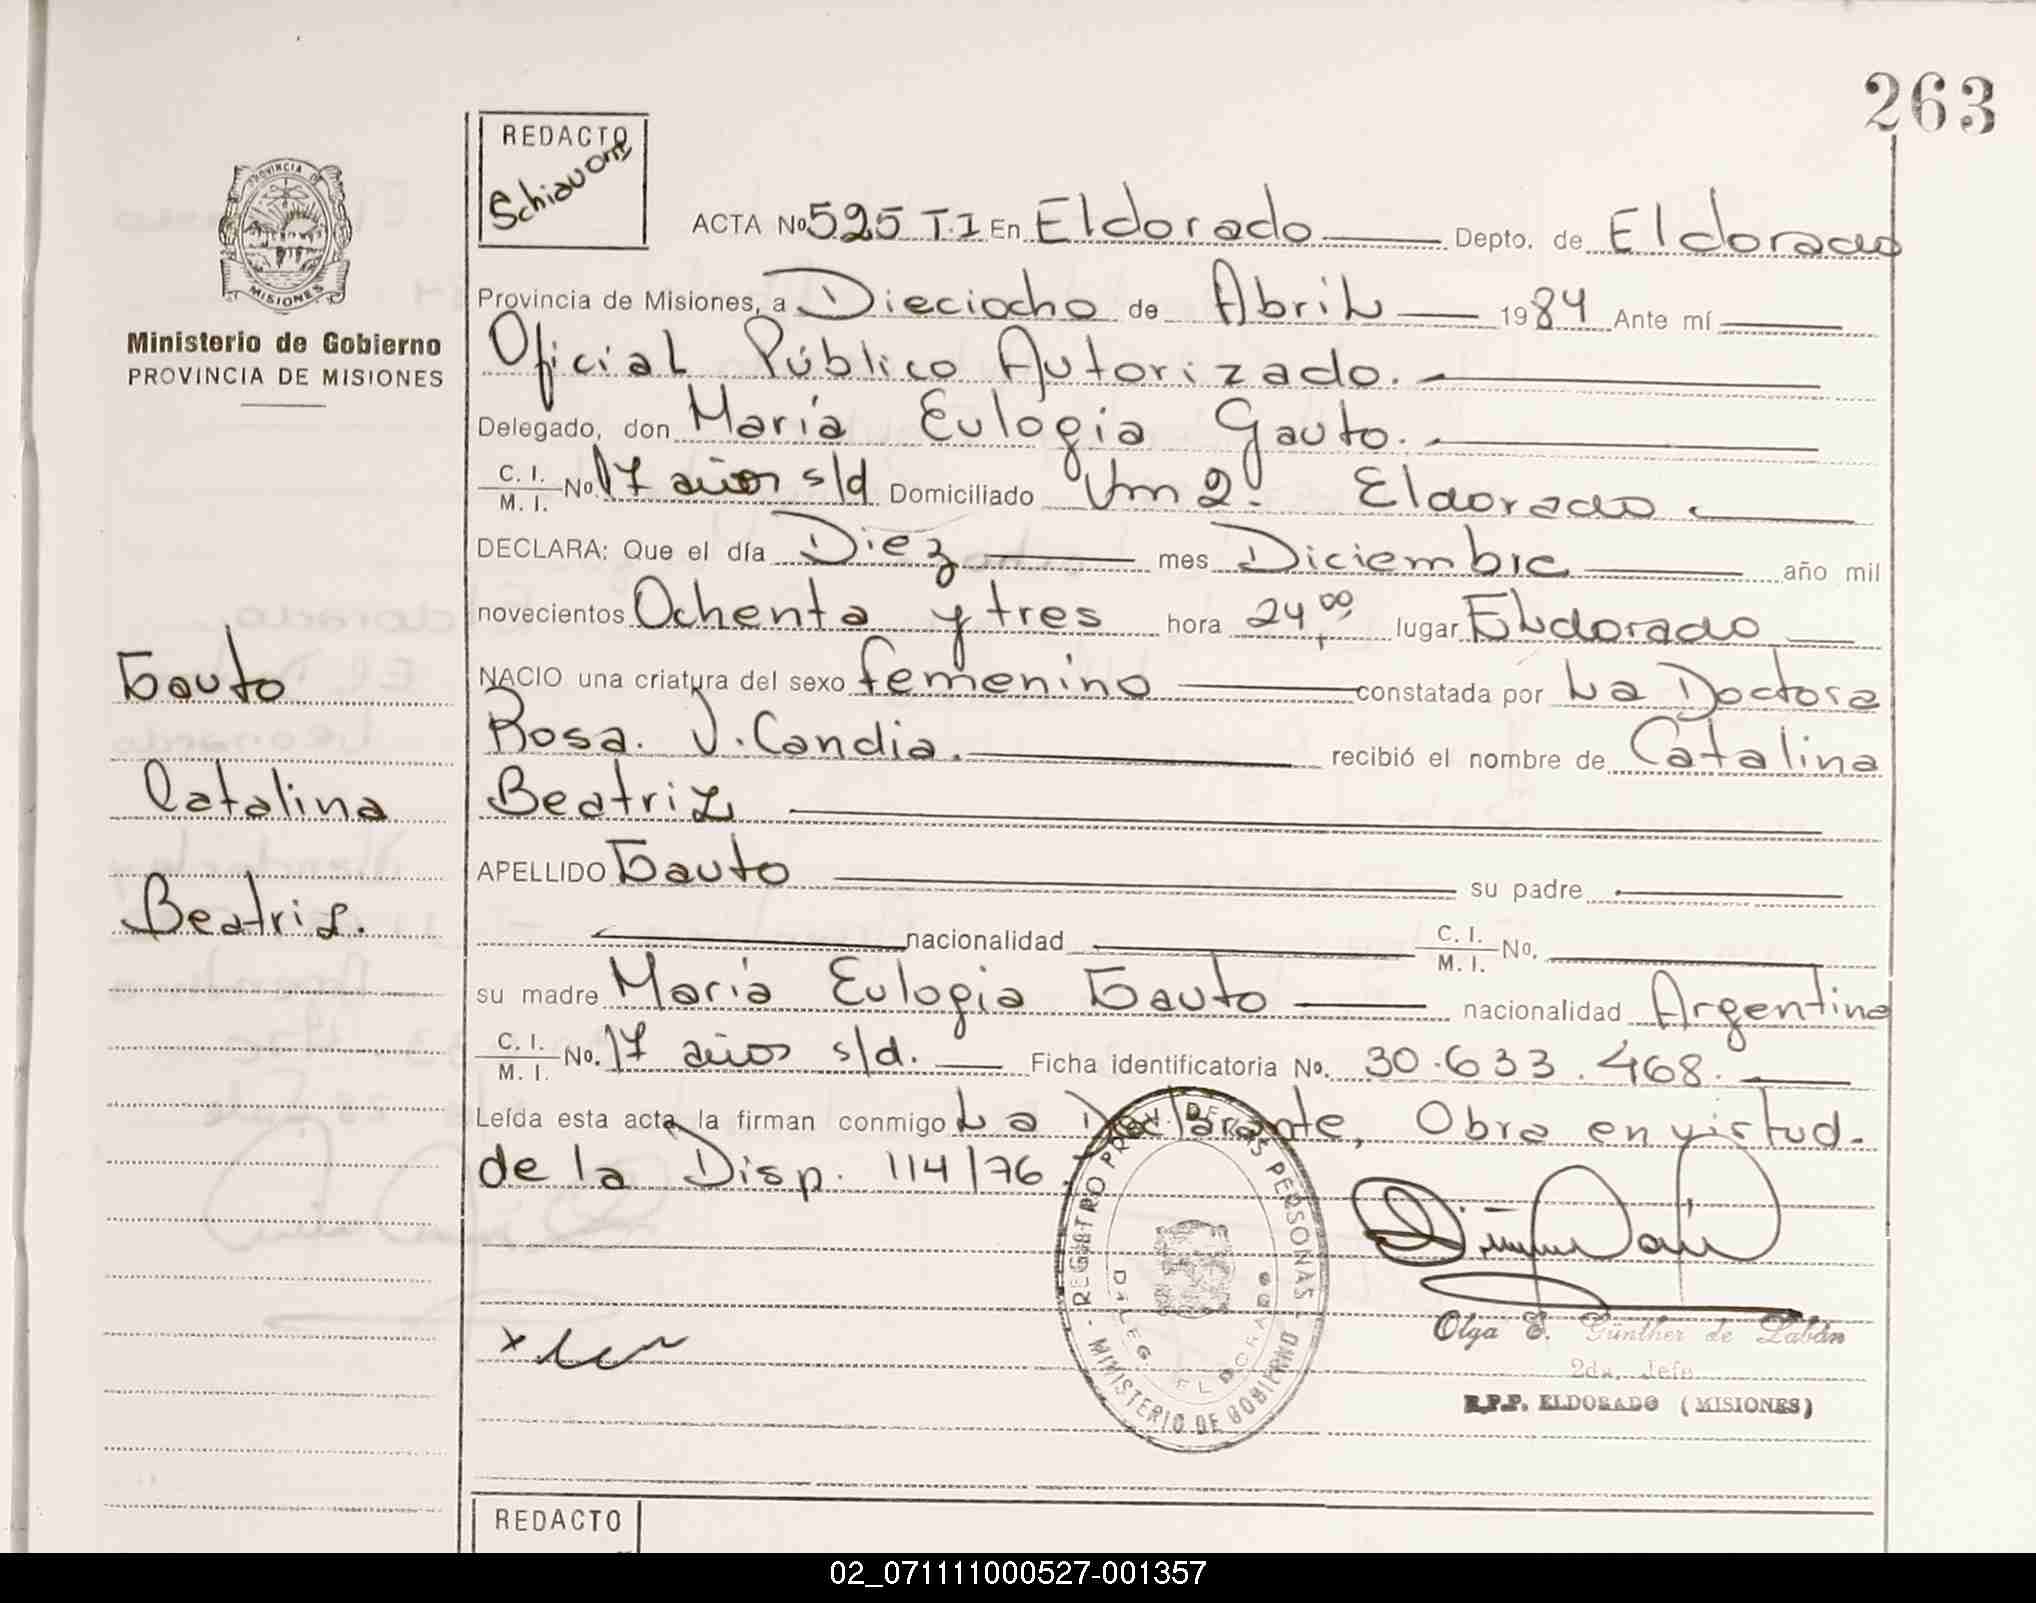 263
REDACTO
Schiavoni
PROVINCIA DE
MISIONES
Ministerio de Gobierno
PROVINCIA DE MISIONES
ACTA Nº 525 T.I En Eldorado Depto. de Eldorado
Provincia de Misiones, a Dieciocho de Abril 1984 Ante mí
Oficial Público Autorizado.
Delegado, don María Eulogia Gauto.
C. I. / M. I. No. 17 años s/d Domiciliado Km 2. Eldorado
DECLARA: Que el día Diez mes Diciembre año mil
novecientos Ochenta y tres hora 24,00 lugar Eldorado
NACIO una criatura del sexo femenino constatada por La Doctora
Rosa. J. Candia. recibió el nombre de Catalina
Beatriz
APELLIDO Gauto su padre
nacionalidad C. I. / M. I. No.
su madre María Eulogia Gauto nacionalidad Argentina
C. I. / M. I. No. 17 años s/d. Ficha identificatoria No. 30.633.468.
Leída esta acta, la firman conmigo La Declarante, Obra en virtud.
de la Disp. 114/76
Gauto
Catalina
Beatriz.
REGISTRO PROV. DE LAS PERSONAS
MINISTERIO DE GOBIERNO
DELEG. ELDORADO
Olga E. Günther de Labán
2da. Jefe
R.P.P. ELDORADO (MISIONES)
REDACTO
02_071111000527-001357